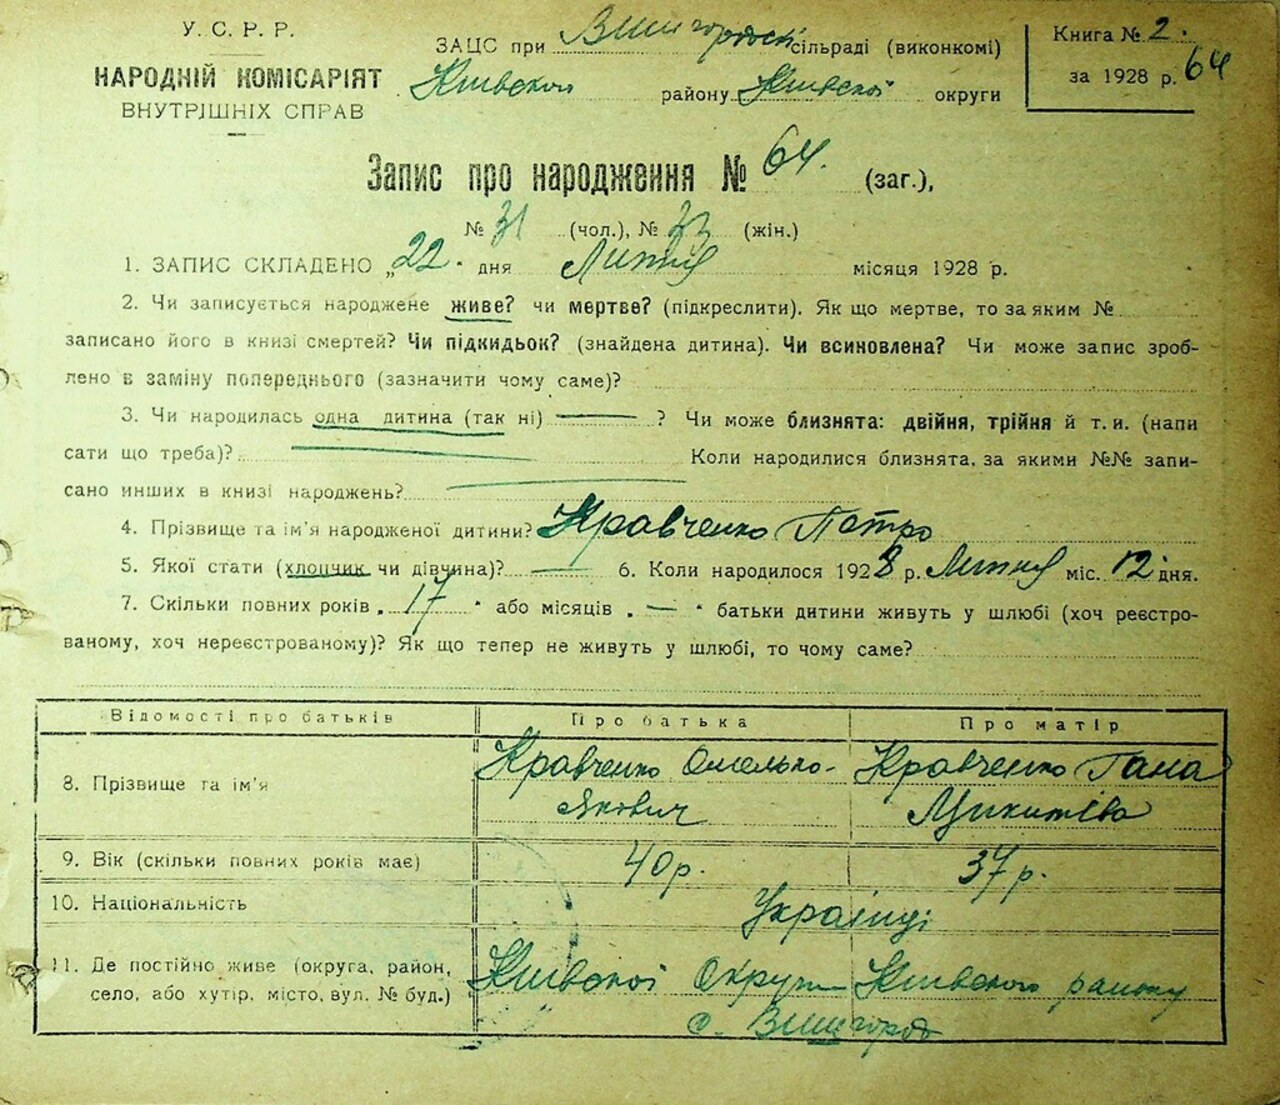 У. С. Р. Р.
НАРОДНІЙ КОМІСАРІЯТ
ВНУТРІШНІХ СПРАВ
ЗАЦС при Вишгородскі сільраді (виконкомі)
Київского району Київскої округи
Книга № 2.
за 1928 р. 64
Запис про народження № 64. (заг.),
№ 31 (чол.), № 33 (жін.)
1. ЗАПИС СКЛАДЕНО „22" дня Липня місяця 1928 р.
2. Чи записується народжене живе? чи мертве? (підкреслити). Як що мертве, то за яким №
записано його в книзі смертей? Чи підкидьок? (знайдена дитина). Чи всиновлена? Чи може запис зроб-
лено в заміну попереднього (зазначити чому саме)?
3. Чи народилась одна дитина (так ні) ——— ? Чи може близнята: двійня, трійня й т. и. (напи
сати що треба)? Коли народилися близнята, за якими №№ запи-
сано инших в книзі народжень?
4. Прізвище та ім'я народженої дитини? Кравченко Петро
5. Якої стати (хлопчик чи дівчина)? — 6. Коли народилося 1928 р. Липня міс. 12 дня.
7. Скільки повних років „ 17 " або місяців „ — " батьки дитини живуть у шлюбі (хоч реєстро-
ваному, хоч нереєстрованому)? Як що тепер не живуть у шлюбі, то чому саме?
Відомості про батьків Про батька Про матір
8. Прізвище та ім'я Кравченко Омелько Кравченко Гана
Якович Микитівна
9. Вік (скільки повних років має) 40 р. 37 р.
10. Національність Українці
11. Де постійно живе (округа, район, Київскої Округи Київского району
село, або хутір, місто, вул. № буд.) с. Вишгород